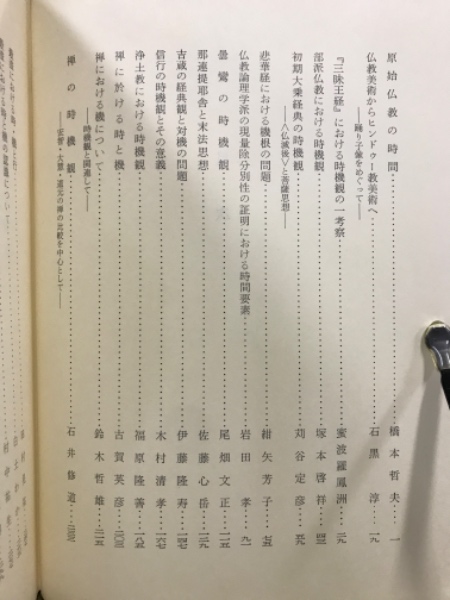 原始仏教の時間……橋本哲夫…一
仏教美術からヒンドゥー教美術へ……石黒淳…一九
――踊り子像をめぐって――
『三昧王経』における時機観の一考察……蜜波羅鳳洲…二九
部派仏教における時機観……塚本啓祥…四三
初期大乗経典の時機観……苅谷定彦…五九
――〈仏滅後〉と菩薩思想――
悲華経における機根の問題……紺矢芳子…七五
仏教論理学派の現量除分別性の証明における時間要素……岩田孝…九一
曇鸞の時機観……尾畑文正…一一五
那連提耶舎と末法思想……佐藤心岳…一二九
吉蔵の経典観と対機の問題……伊藤隆寿…一四七
信行の時機観とその意義……木村清孝…一六七
浄土教における時機観……福原隆善…一八五
禅に於ける時と機……古賀英彦…二〇三
禅における機について……鈴木哲雄…二一五
――時機観と関連して――
禅の時機観……石井修道…
――宏智・大慧・道元の禅の比較を中心として――